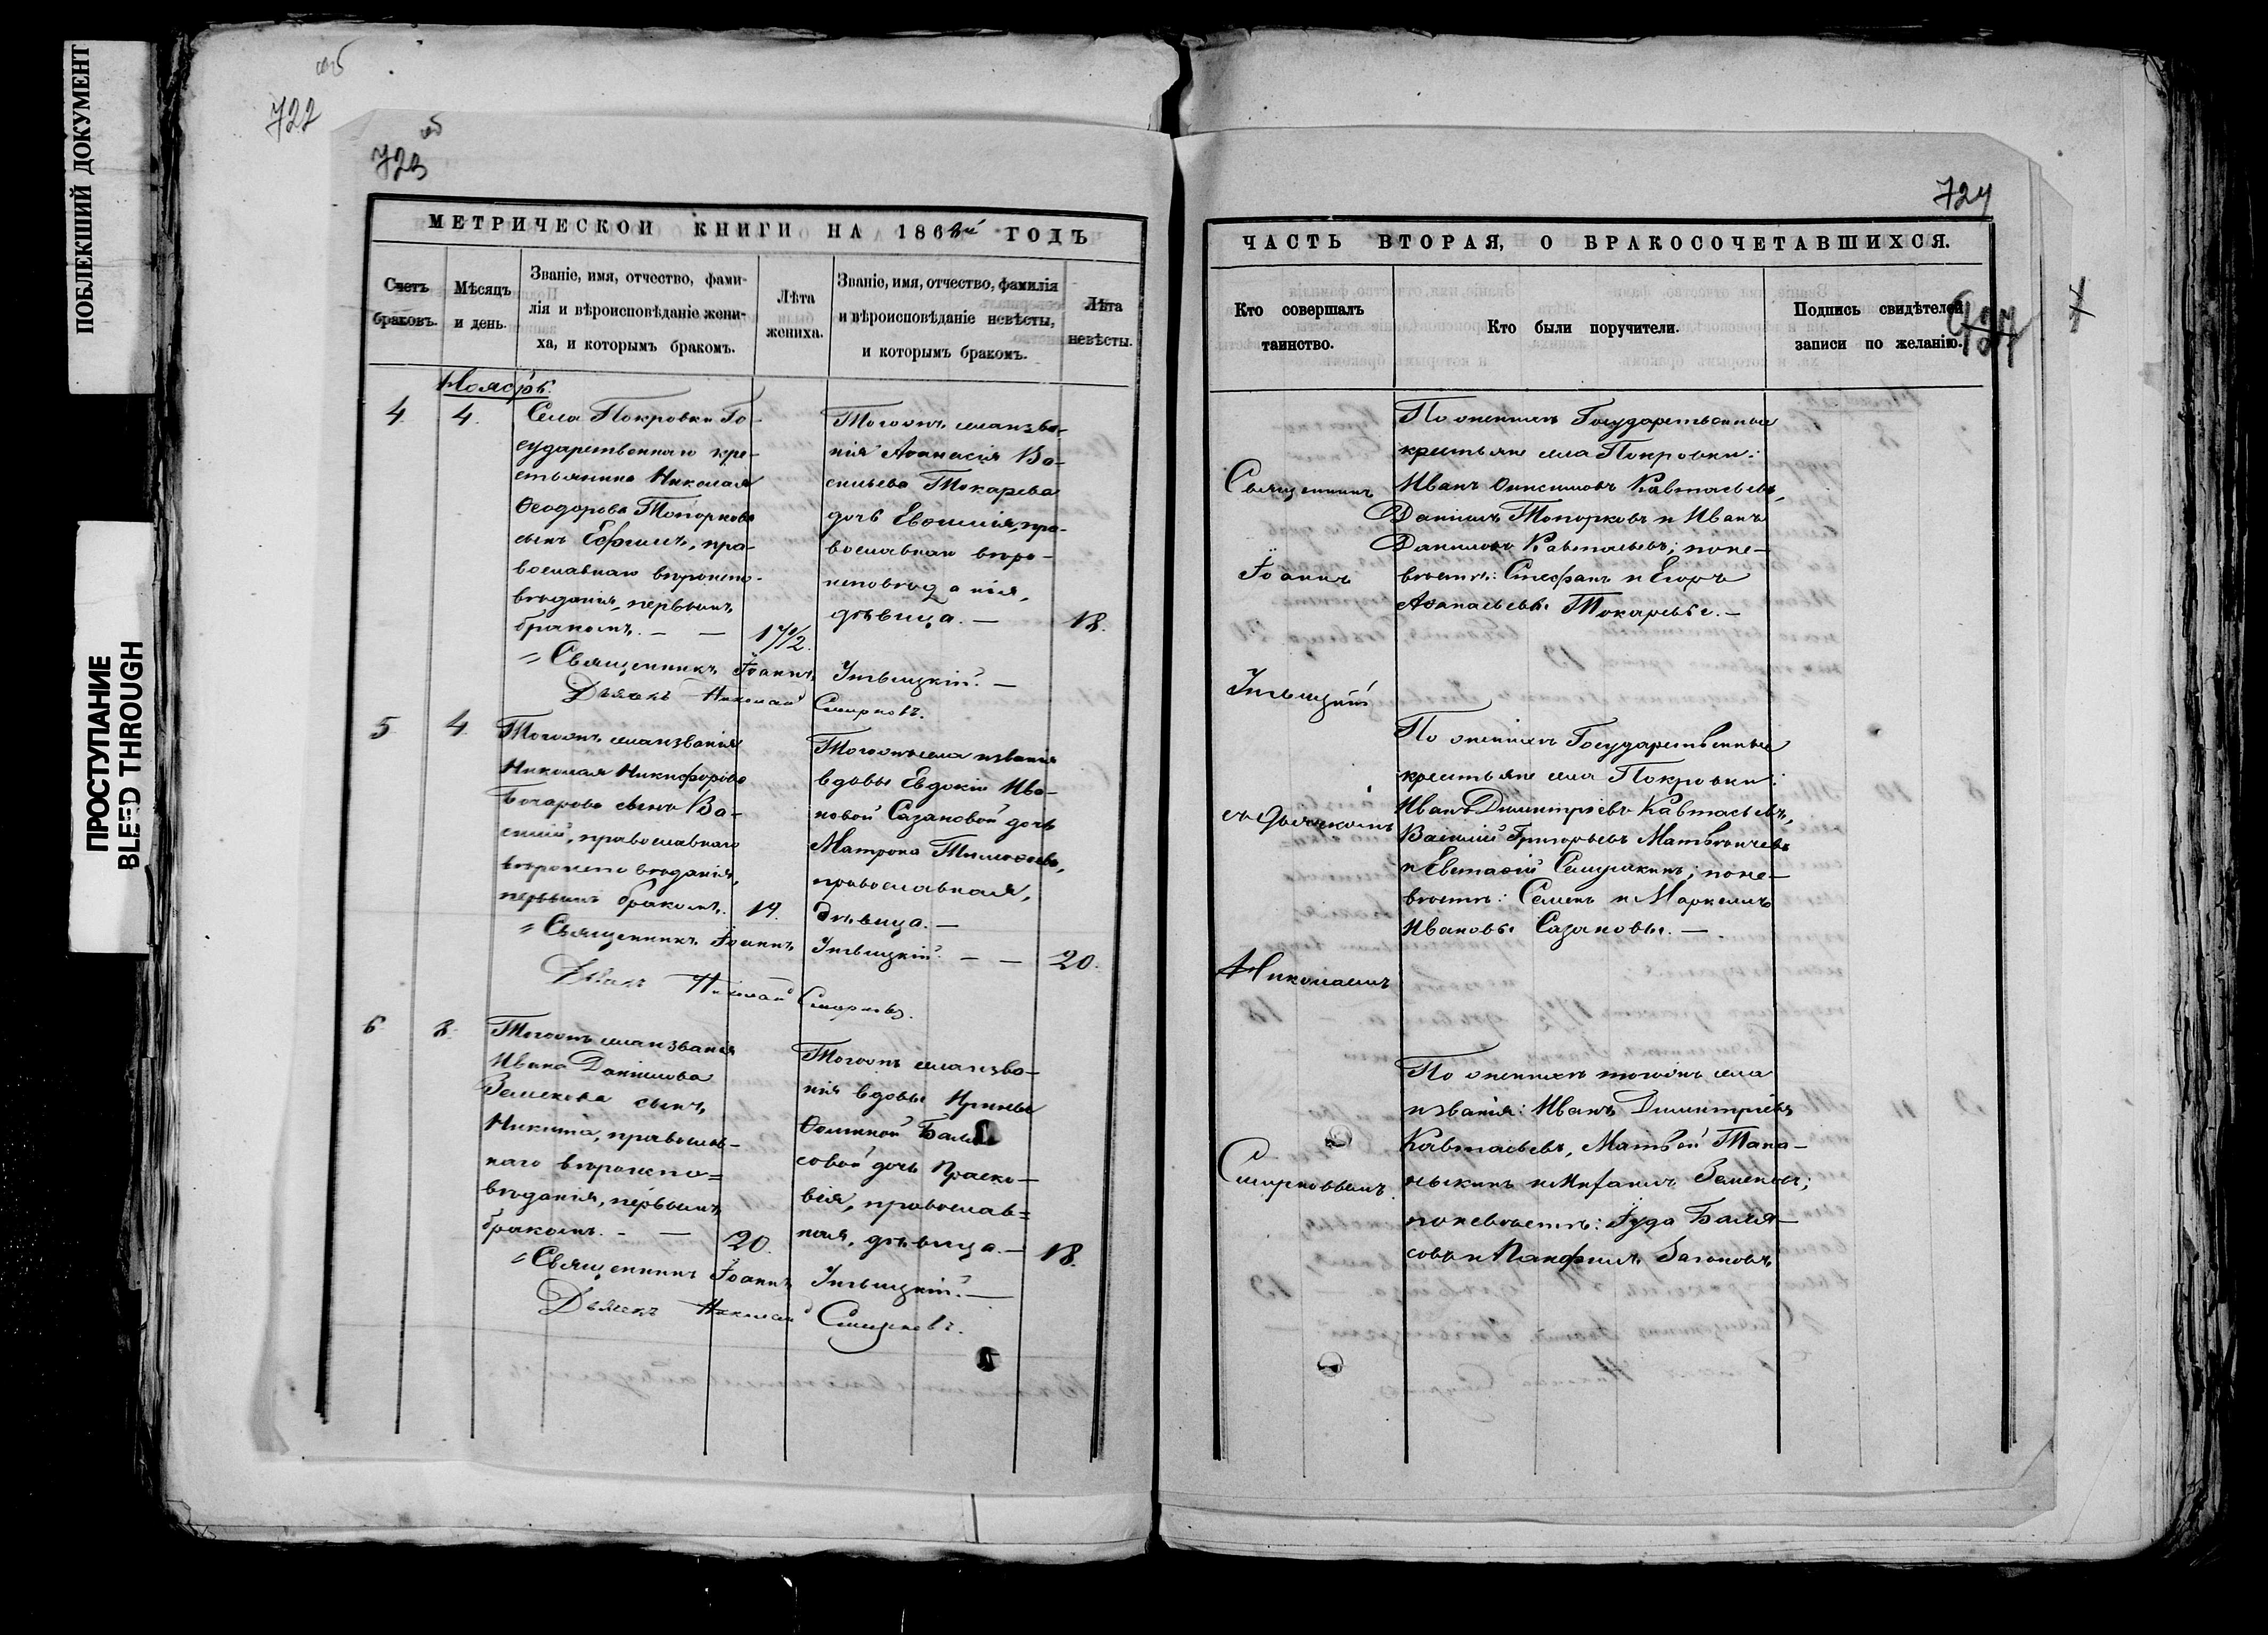 ПОБЛЕКШИЙ ДОКУМЕНТ
ПРОСТУПАНИЕ
BLEED THROUGH
об
722
об
723
МЕТРИЧЕСКОЙ КНИГИ НА 186 ГОДЪ
Счетъ браковъ.
Мѣсяцъ и день.
Званіе, имя, отчество, фами-
лія и вѣроисповѣданіе жени-
ха, и которымъ бракомъ.
Лѣта жениха.
Званіе, имя, отчество, фамилія
и вѣроисповѣданіе невѣсты,
и которымъ бракомъ.
Лѣта невѣсты.
Ноябрь.
4. 4.
Села Покровки Го-
сударственнаго кре-
стьянина Николая
Ѳеодорова Топоркова
сынъ Ефимъ, пра-
вославнаго вѣроиспо-
вѣданія, первымъ
бракомъ. — — 17 1/2.
Тогоожъ села и зва-
нія Аѳанасія Ва-
сильева Токарева
дочь Евѳимія, пра-
вославнаго вѣро-
исповѣданія,
дѣвица. — 18.
Священникъ Іоаннъ
Дьячекъ Николай Смирновъ.
5 4.
Тогоожъ села и званія
Николая Никифорова
Бочарова сынъ Ва-
силій, православнаго
вѣроисповѣданія,
первымъ бракомъ. 19.
Тогоожъ села и званія
вдовы Евдокіи Ива-
новой Сазановой дочь
Матрона Тимоѳеева,
православная,
дѣвица. —
Священникъ Іоаннъ — — 20.
Дьячекъ Николай Смирновъ.
6 8.
Тогоожъ села и званія
Ивана Даніилова
Земскова сынъ
Никита, православ-
наго вѣроиспо=
вѣданія, первымъ
бракомъ. — — 20.
Тогоожъ села и зва-
нія вдовы Ирины
Ѳоминой Баля
совой дочь Параско-
вія, православ=
ная, дѣвица. — 18.
Священникъ Іоаннъ
Дьячекъ Николай Смирновъ.
724
ЧАСТЬ ВТОРАЯ, О БРАКОСОЧЕТАВШИХСЯ.
Кто совершалъ
таинство.
Кто были поручители.
Подпись свидѣтелей
записи по желанію.
Священникъ
Іоаннъ
съ дьячкомъ
Николаемъ
Смирновымъ.
По женихѣ Государственные
крестьяне села Покровки:
Иванъ Онисимовъ Кавтасьевъ,
Даніилъ Топорковъ и Иванъ
Даниловъ Кавтасьевъ; по не-
вѣстѣ: Стефанъ и Егоръ
Аѳанасьевы Токаревы. —
По женихѣ Государственные
крестьяне села Покровки:
Иванъ Димитріевъ Кавтасьевъ,
Василій Григорьевъ Матвѣичевъ
и Евстафій Самушкинъ; по не-
вѣстѣ: Семенъ и Маркеллъ
Ивановы Сазановы. —
По женихѣ тогоожъ села
и званія: Иванъ Димитріевъ
Кавтасьевъ, Матвѣй Тана-
по невѣстѣ: Іуда Баля-
совъ и Панфилъ